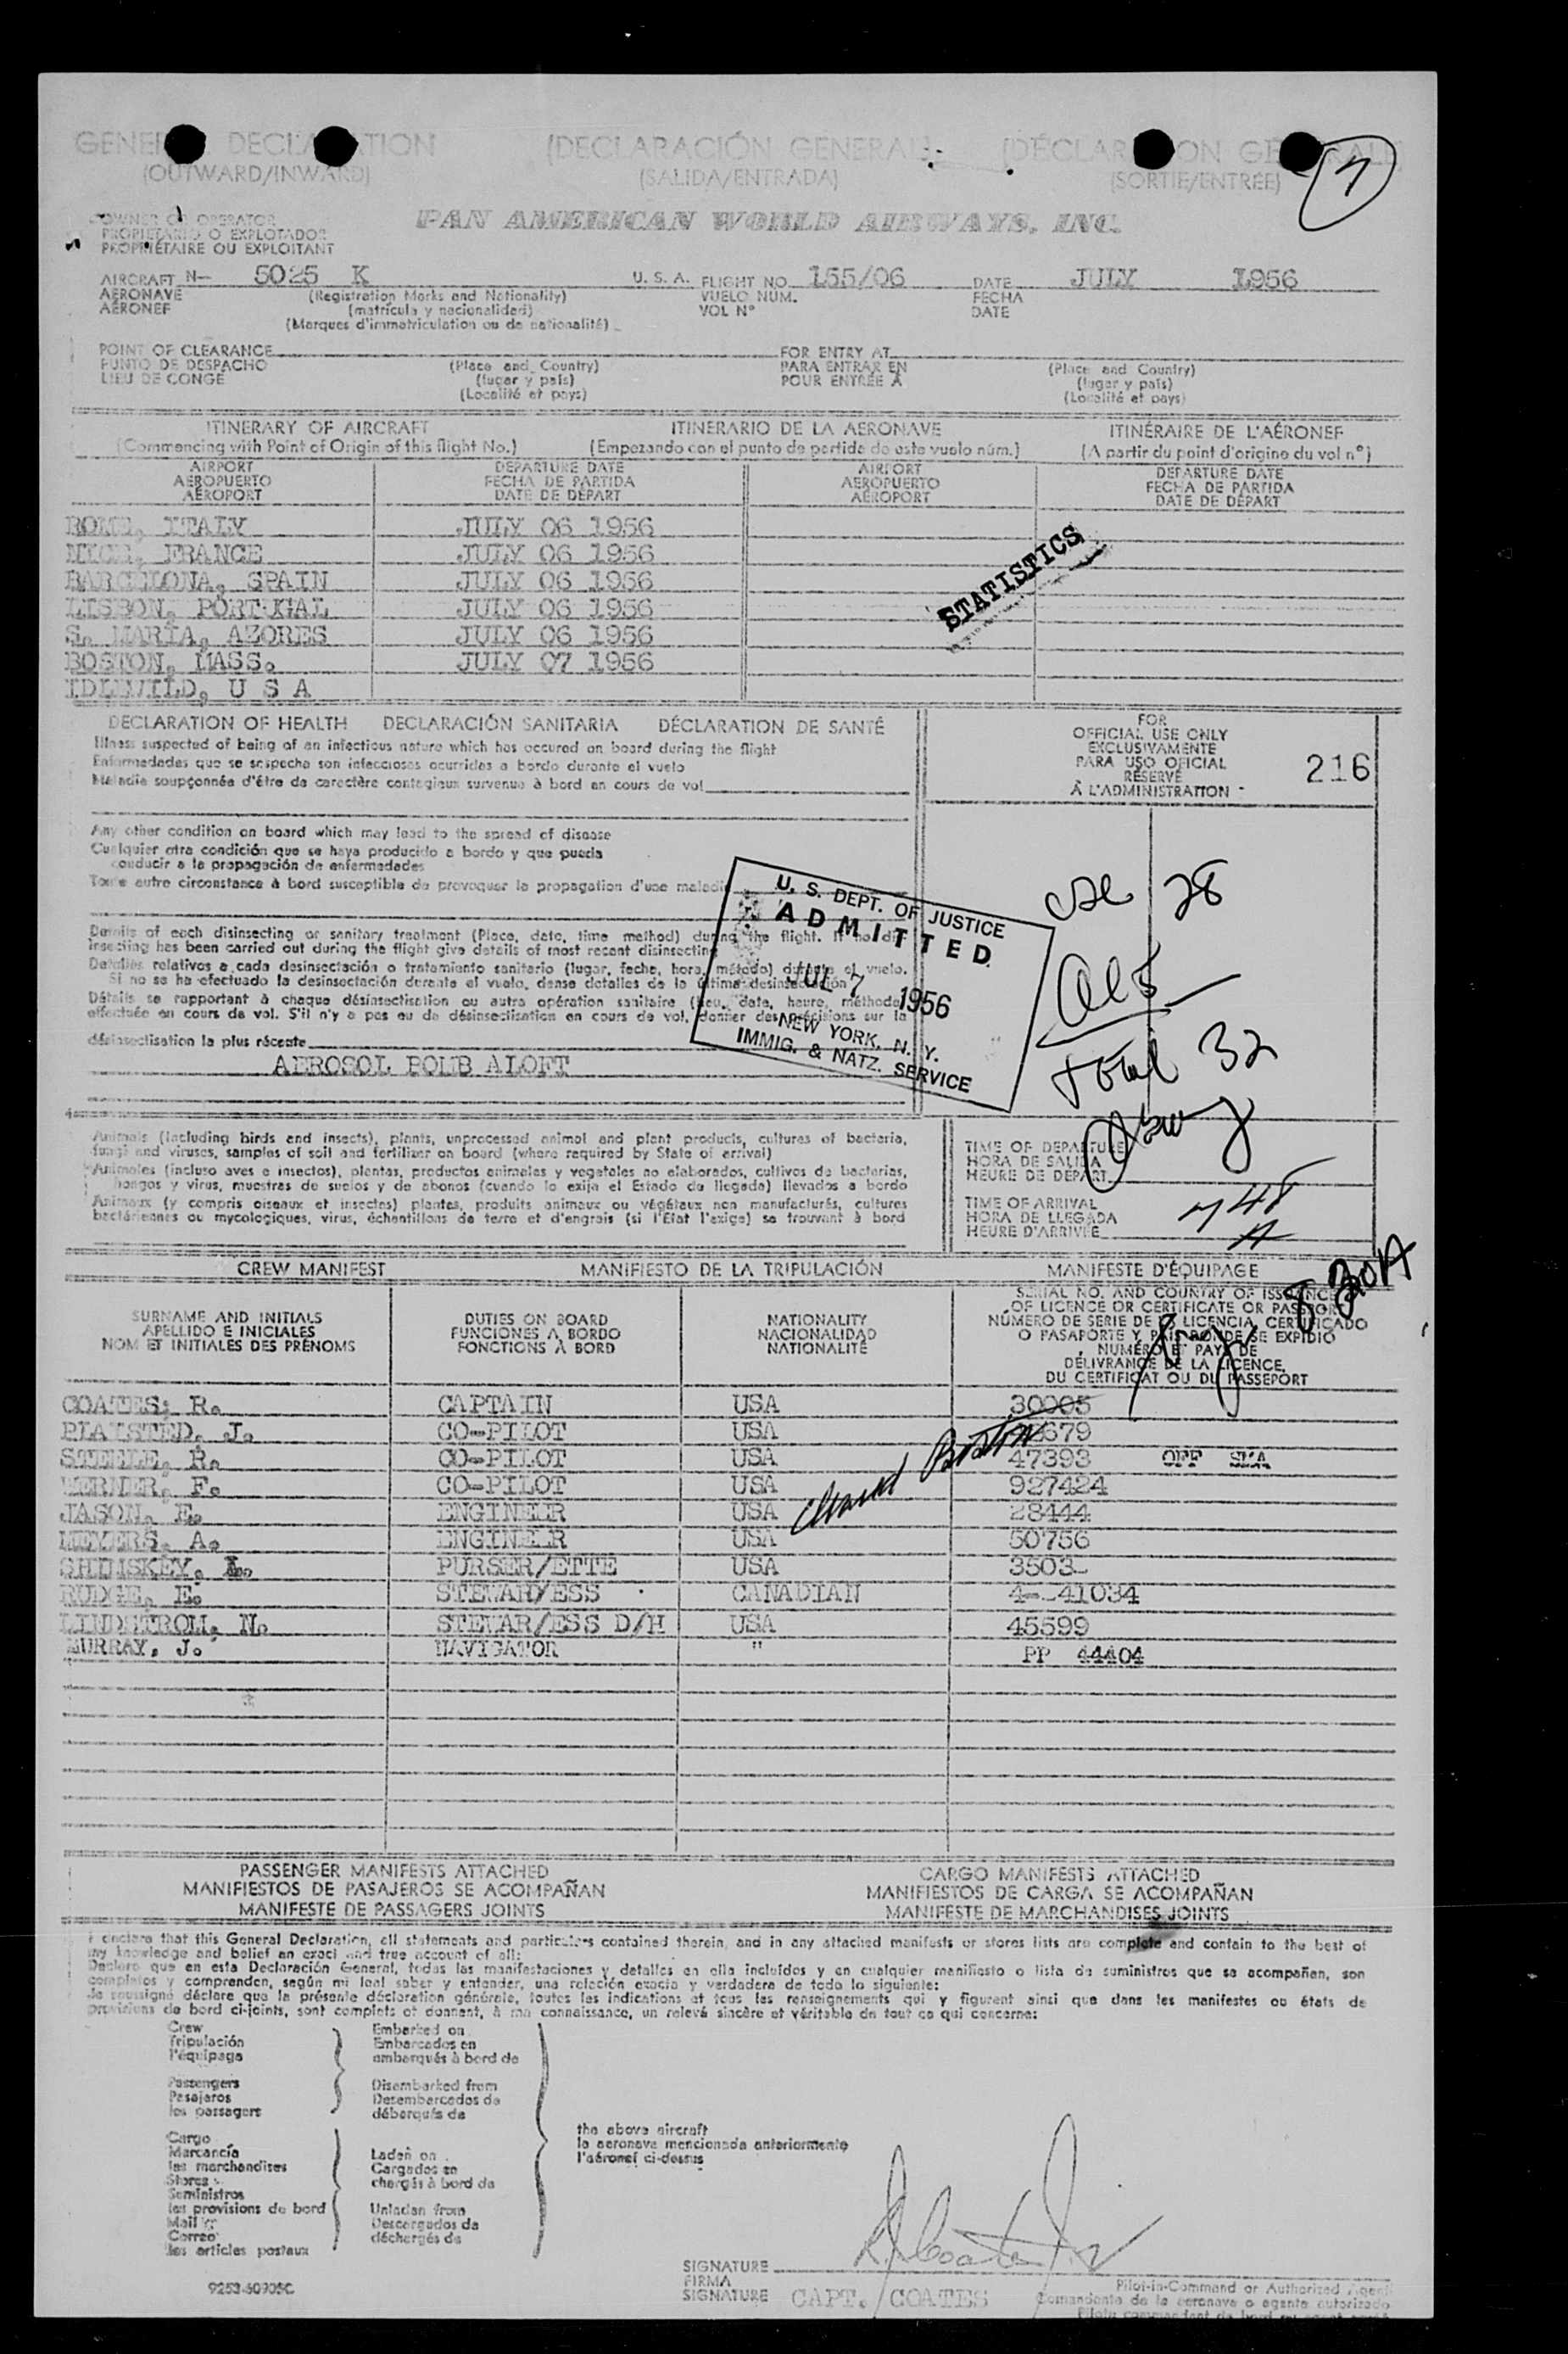 GENE DECLA TION (DECLARACIÓN GENERAL) (DÉCLAR ON GE RALE)
(OUTWARD/INWARD) (SALIDA/ENTRADA) (SORTIE/ENTRÉE)
OWNER OR OPERATOR
PROPIETARIO O EXPLOTADOR
PROPRIÉTAIRE OU EXPLOITANT
PAN AMERICAN WORLD AIRWAYS, INC.
AIRCRAFT N- 5025 K U. S. A. FLIGHT NO. 155/06 DATE JULY 1956
AERONAVE (Registration Marks and Nationality) VUELO NUM. FECHA
AÉRONEF (matrícula y nacionalidad) VOL N° DATE
(Marques d'immatriculation ou de nationalité)
POINT OF CLEARANCE FOR ENTRY AT
PUNTO DE DESPACHO (Place and Country) PARA ENTRAR EN (Place and Country)
LIEU DE CONGÉ (lugar y país) POUR ENTRÉE À (lugar y país)
(Localité et pays) (Localité et pays)
ITINERARY OF AIRCRAFT ITINERARIO DE LA AERONAVE ITINÉRAIRE DE L'AÉRONEF
(Commencing with Point of Origin of this flight No.) (Empezando con el punto de partida de este vuelo núm.) (A partir du point d'origine du vol n°)
AIRPORT DEPARTURE DATE AIRPORT DEPARTURE DATE
AEROPUERTO FECHA DE PARTIDA AEROPUERTO FECHA DE PARTIDA
AÉROPORT DATE DE DÉPART AÉROPORT DATE DE DÉPART
ROME, ITALY JULY 06 1956
NICE, FRANCE JULY 06 1956
BARCELONA, SPAIN JULY 06 1956
LISBON, PORTUGAL JULY 06 1956
S. MARIA, AZORES JULY 06 1956
BOSTON, MASS. JULY 07 1956
IDLEWILD, U S A
STATISTICS
DECLARATION OF HEALTH DECLARACIÓN SANITARIA DÉCLARATION DE SANTÉ
Illness suspected of being of an infectious nature which has occured on board during the flight
Enfermedades que se sospecha son infecciosas ocurridas a bordo durante el vuelo
Maladie soupçonnée d'être de caractère contagieux survenue à bord en cours de vol
FOR
OFFICIAL USE ONLY
EXCLUSIVAMENTE
PARA USO OFICIAL
RÉSERVÉ
À L'ADMINISTRATION
216
Any other condition on board which may lead to the spread of disease
Cualquier otra condición que se haya producido a bordo y que pueda
conducir a la propagación de enfermedades
Toute autre circonstance à bord susceptible de provoquer la propagation d'une maladie
Details of each disinsecting or sanitary treatment (Place, date, time method) during the flight. If no dis-
insecting has been carried out during the flight give details of most recent disinsecting
Detalles relativos a cada desinsectación o tratamiento sanitario (lugar, fecha, hora, método) durante el vuelo.
Si no se ha efectuado la desinsectación durante el vuelo, dense detalles de la última desinsectación
Détails se rapportant à chaque désinsectisation ou autre opération sanitaire (lieu, date, heure, méthode)
effectuée en cours de vol. S'il n'y a pas eu de désinsectisation en cours de vol, donner des précisions sur la
désinsectisation la plus récente
AEROSOL BOMB ALOFT
U. S. DEPT. OF JUSTICE
ADMITTED
JUL 7 1956
NEW YORK, N. Y.
IMMIG. & NATZ. SERVICE
28
Total 32
Animals (including birds and insects), plants, unprocessed animal and plant products, cultures of bacteria,
fungi and viruses, samples of soil and fertilizer on board (where required by State of arrival)
Animales (incluso aves e insectos), plantas, productos animales y vegetales no elaborados, cultivos de bacterias,
hongos y virus, muestras de suelos y de abonos (cuando lo exija el Estado de llegada) llevados a bordo
Animaux (y compris oiseaux et insectes) plantes, produits animaux ou végétaux non manufacturés, cultures
bactériennes ou mycologiques, virus, échantillons de terre et d'engrais (si l'État l'exige) se trouvant à bord
TIME OF DEPARTURE
HORA DE SALIDA
HEURE DE DÉPART
TIME OF ARRIVAL
HORA DE LLEGADA
HEURE D'ARRIVÉE
748
A
830A
CREW MANIFEST MANIFIESTO DE LA TRIPULACIÓN MANIFESTE D'ÉQUIPAGE
SURNAME AND INITIALS
APELLIDO E INICIALES
NOM ET INITIALES DES PRÉNOMS
DUTIES ON BOARD
FUNCIONES A BORDO
FONCTIONS À BORD
NATIONALITY
NACIONALIDAD
NATIONALITÉ
SERIAL NO. AND COUNTRY OF ISSUANCE
OF LICENCE OR CERTIFICATE OR PASSPORT
NÚMERO DE SERIE DE LA LICENCIA, CERTIFICADO
O PASAPORTE Y PAÍS DONDE SE EXPIDIÓ
NUMÉRO ET PAYS DE
DÉLIVRANCE DE LA LICENCE,
DU CERTIFICAT OU DU PASSEPORT
COATES, R. CAPTAIN USA 30005
PLAISTED, J. CO-PILOT USA 679
STEELE, R. CO-PILOT USA 47393 OFF SMA
WERNER, F. CO-PILOT USA 927424
JASON, E. ENGINEER USA 28444
MEYERS, A. ENGINEER USA 50756
SHIMSKEY, L. PURSER/ETTE USA 3503
RUDGE, E. STEWARD/ESS CANADIAN 4--41034
LINDSTROM, N. STEWAR/ESS D/H USA 45599
MURRAY, J. NAVIGATOR " PP 44404
Boston
PASSENGER MANIFESTS ATTACHED CARGO MANIFESTS ATTACHED
MANIFIESTOS DE PASAJEROS SE ACOMPAÑAN MANIFIESTOS DE CARGA SE ACOMPAÑAN
MANIFESTE DE PASSAGERS JOINTS MANIFESTE DE MARCHANDISES JOINTS
I declare that this General Declaration, all statements and particulars contained therein, and in any attached manifests or stores lists are complete and contain to the best of
my knowledge and belief an exact and true account of all:
Declaro que en esta Declaración General, todas las manifestaciones y detalles en ella incluidos y en cualquier manifiesto o lista de suministros que se acompañan, son
completos y comprenden, según mi leal saber y entender, una relación exacta y verdadera de todo lo siguiente:
Je soussigné déclare que la présente déclaration générale, toutes les indications et tous les renseignements qui y figurent ainsi que dans les manifestes ou états de
provisions de bord ci-joints, sont complets et donnent, à ma connaissance, un relevé sincère et véritable de tout ce qui concerne:
Crew
Tripulación
l'équipage
Passengers
Pasajeros
les passagers
Cargo
Marcancía
les marchandises
Stores
Suministros
les provisions de bord
Mail
Correo
les articles postaux
Embarked on
Embarcados en
embarqués à bord de
Disembarked from
Desembarcados de
débarqués de
Laden on
Cargados en
chargés à bord de
Unladen from
Descargados de
déchargés de
the above aircraft
la aeronave mencionada anteriormente
l'aéronef ci-dessus
SIGNATURE
FIRMA
SIGNATURE CAPT. COATES
Pilot-in-Command or Authorized Agent
Comandante de la aeronave o agente autorizado
9253-60905C